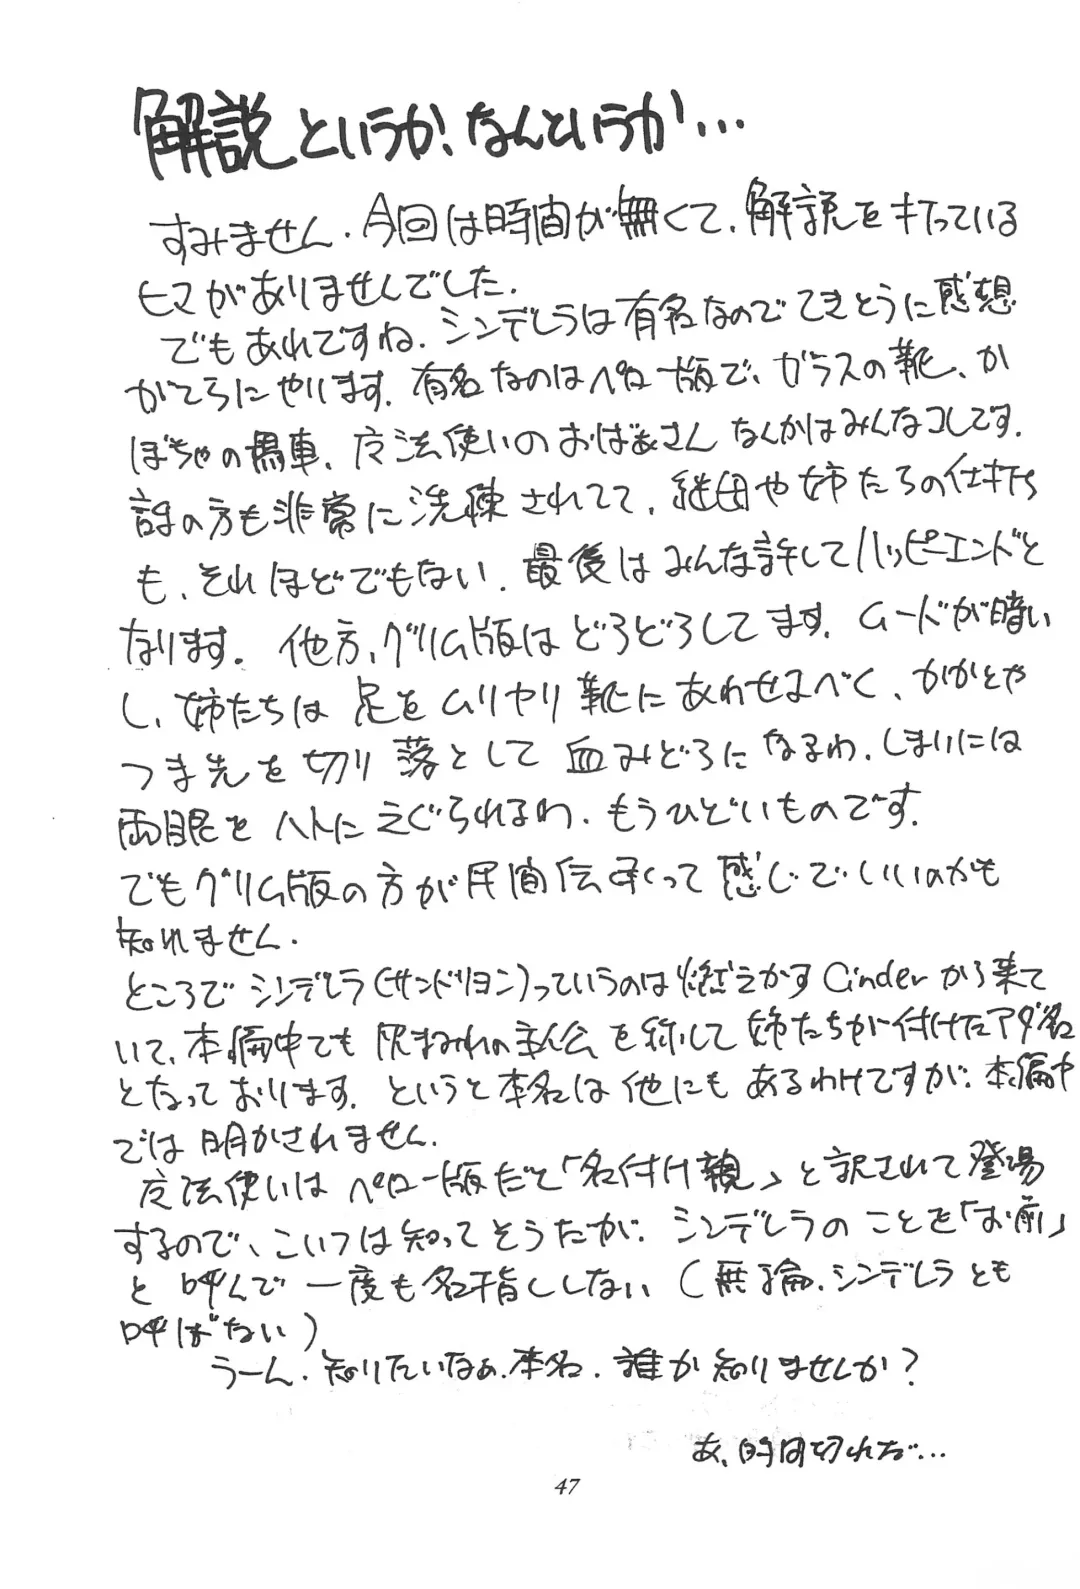 解説というか、なんというか…
すみません. 今回は時間が無くて、解説を打っている
ヒマがありませんでした.
でもあれですね. シンデレラは有名なのでてきとうに感想
がてらにやります. 有名なのはペロー版で、ガラスの靴、か
ぼちゃの馬車、魔法使いのおばあさんなんかはみんなコレです.
話の方も非常に洗練されてて、継母や姉たちの仕打ち
も、それほどでもない. 最後はみんな許してハッピーエンドと
なります. 他方、グリム版はどろどろしてます. ムードが暗い
し、姉たちは足をムリヤリ靴にあわせるべく、かかとや
つま先を切り落として血みどろになるわ. しまいには
両眼をハトにえぐられるわ. もうひどいものです.
でもグリム版の方が民間伝承って感じでいいのかも
知れません.
ところでシンデレラ(サンドリヨン)っていうのは燃えかすCinderから来て
いて、本編中でも灰まみれの主人公を称して姉たちが付けたアダ名
となっております. というと本名は他にもあるわけですが、本編中
では明かされません.
魔法使いはペロー版だと「名付け親」と訳されて登場
するので、こいつは知ってそうだが、シンデレラのことを「お前」
と呼んで一度も名指ししない (無論、シンデレラとも
呼ばない)
うーん. 知りたいなぁ. 本名. 誰か知りませんか?
あ、時間切れだ…
47